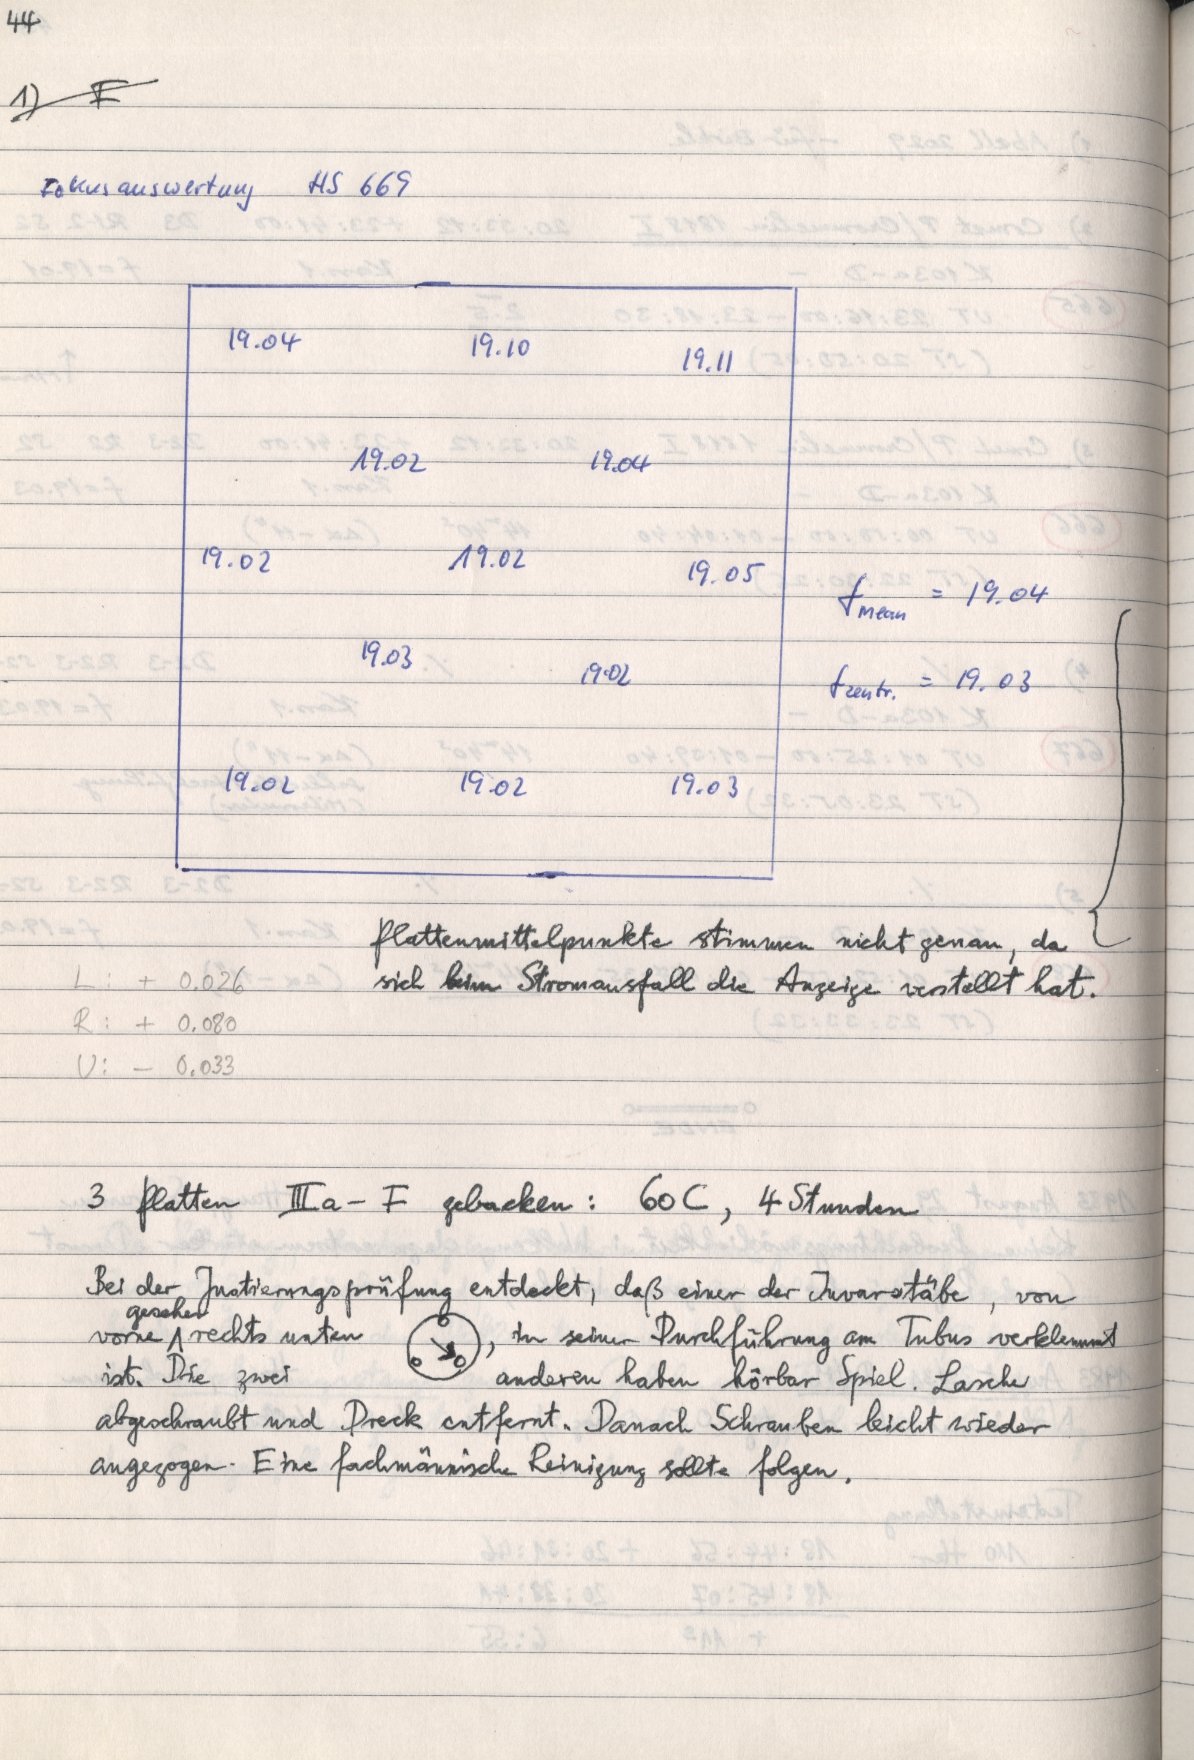 44
1) F
Fokusauswertung HS 669
19.04 19.10 19.11
19.02 19.04
19.02 19.02 19.05
f mean = 19.04
19.03 19.02
f zentr. = 19.03
19.02 19.02 19.03
Plattenmittelpunkte stimmen nicht genau, da
sich beim Stromausfall die Anzeige verstellt hat.
L: + 0.026
R: + 0.080
U: - 0.033
3 Platten IIIa-F gebacken: 60C, 4 Stunden
Bei der Justierungsprüfung entdeckt, daß einer der Invarstäbe, von
gesehen
vorne rechts unten , in seiner Durchführung am Tubus verklemmt
ist. Die zwei anderen haben hörbar Spiel. Lasche
abgeschraubt und Dreck entfernt. Danach Schrauben leicht wieder
angezogen. Eine fachmännische Reinigung sollte folgen.